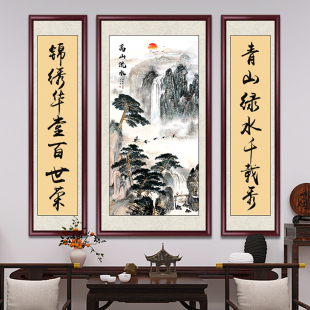 青山绿水千载秀
高山流水
锦绣华堂百世荣